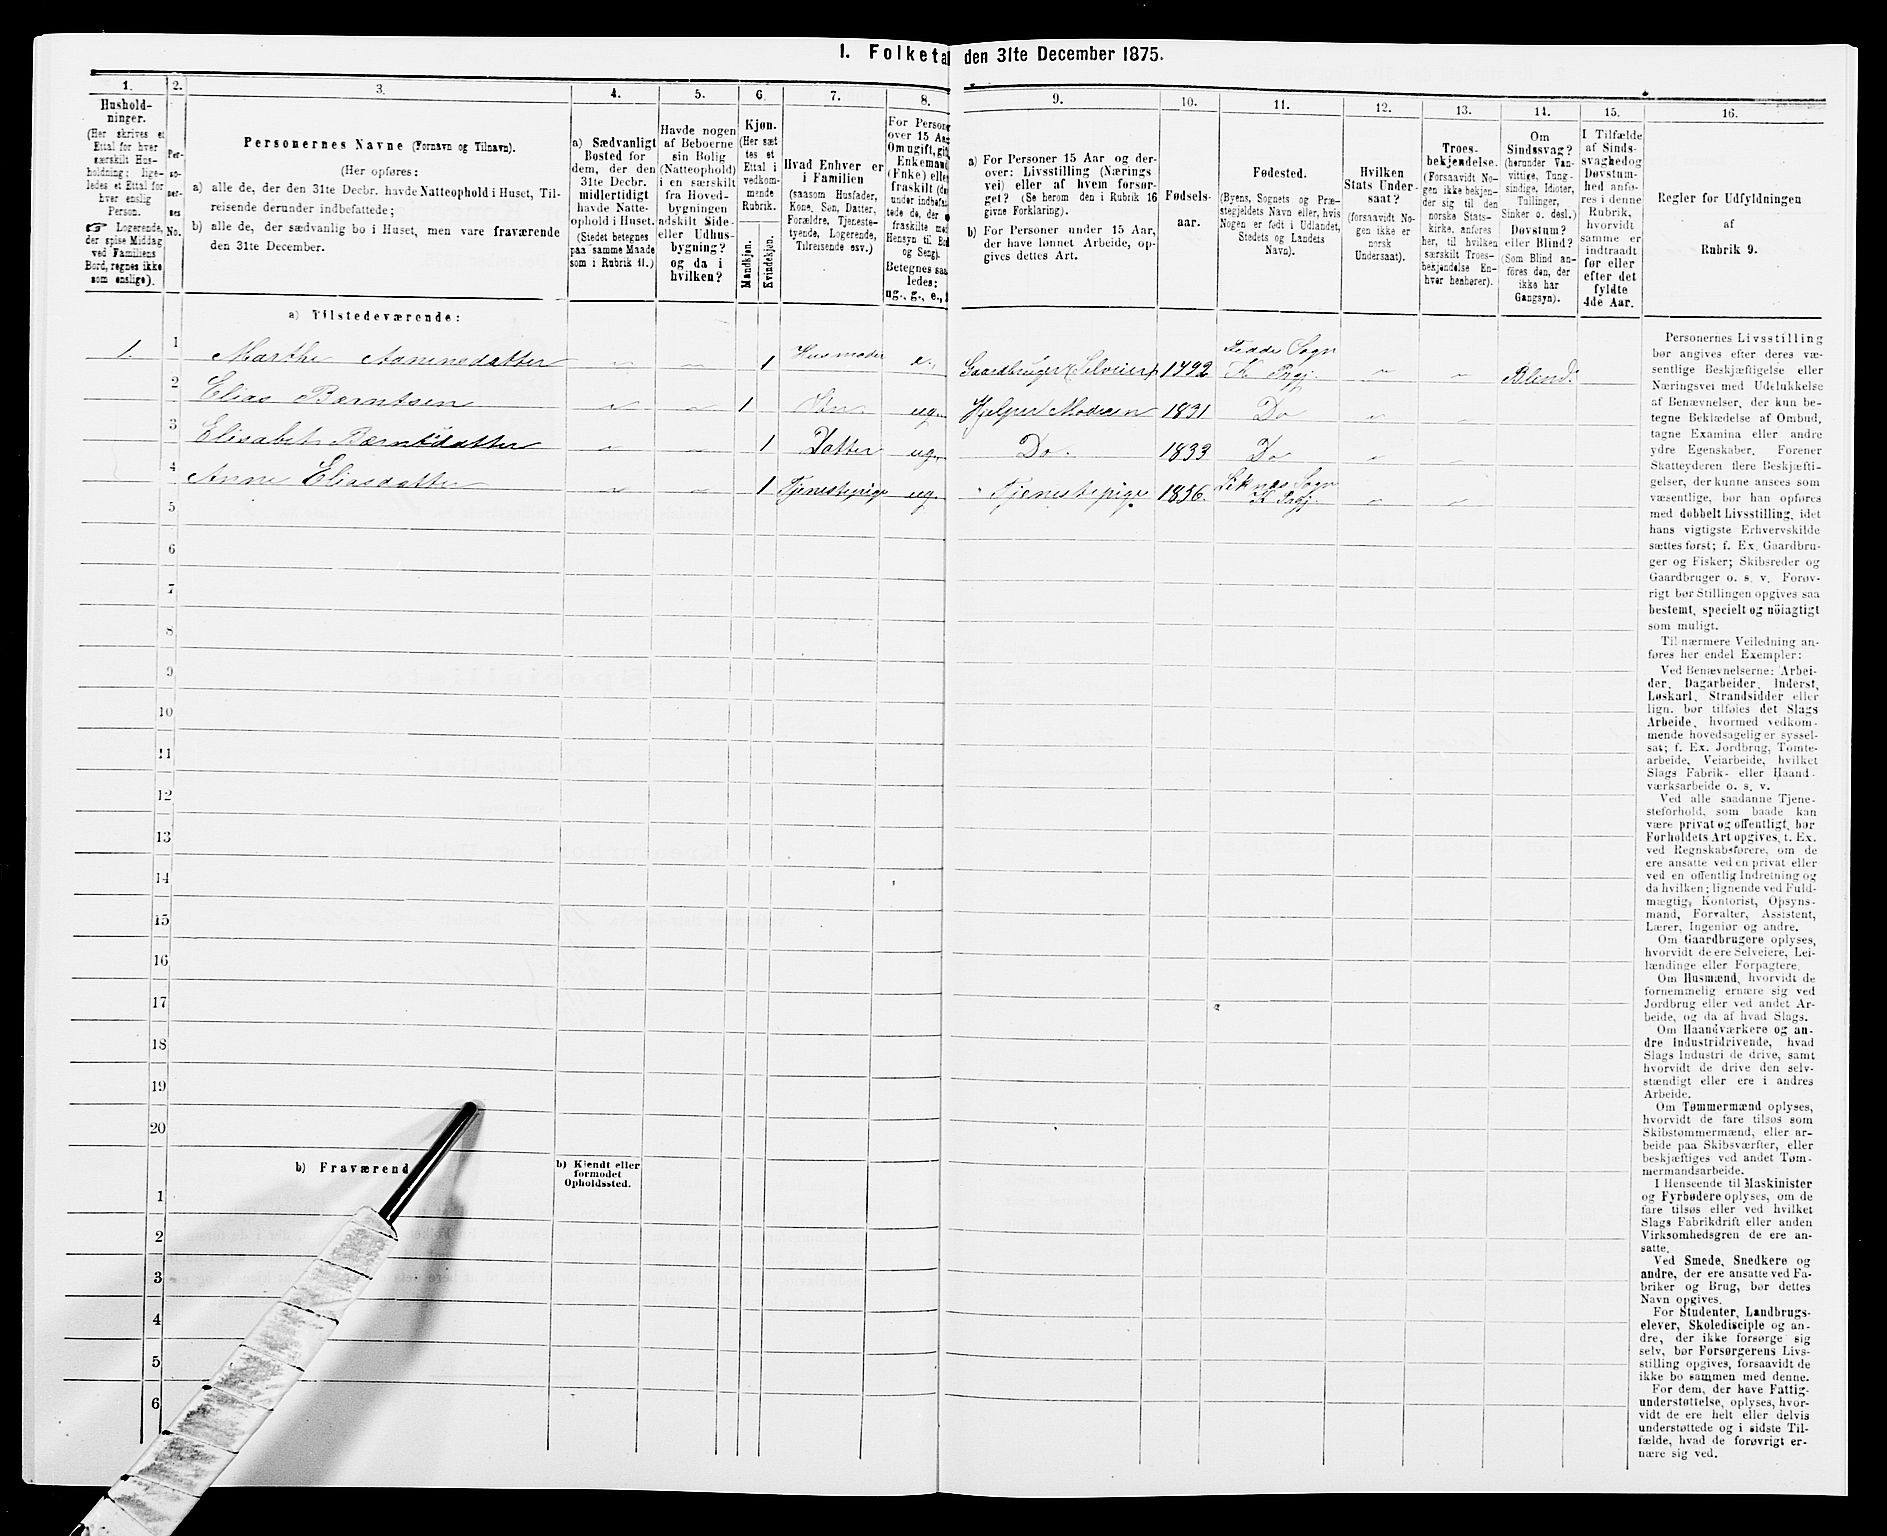 I. Folketa den 31te December 1875.
1. 2. 3. 4. 5. 6. 7. 8. 9. 10. 11. 12. 13. 14. 15. 16.
Hushold-
ninger.
(Her skrives et
Ettal for hver
særskilt Hus-
holdning; lige-
ledes et Ettal for
hver enslig
Person.
☞ Logerende,
der spise Middag
ved Familiens
Bord, regnes ikke
som enslige).
Per-
so-
ner-
nes
No.
Personernes Navne (Fornavn og Tilnavn).
(Her opføres:
a) alle de, der den 31te Decbr. havde Natteophold i Huset, Til-
reisende derunder indbefattede;
b) alle de, der sædvanlig bo i Huset, men vare fraværende
den 31te December.
a) Sædvanligt
Bosted for
dem, der den
31te Decbr.
midlertidigt
havde Natte-
ophold i Huset.
(Stedet betegnes
paa samme Maade
som i Rubrik 11.)
Havde nogen
af Beboerne
sin Bolig
(Natteophold)
i en særskilt
fra Hoved-
bygningen
adskilt Side-
eller Udhus-
bygning?
og da i
hvilken?
Kjøn.
(Her sæt
tes et
Ettal i
vedkom-
mende
Rubrik.
Mandkjøn.
Kvindekjøn.
Hvad Enhver er
i Familien
(saasom Husfader,
Kone, Søn, Datter,
Forældre, Tjeneste-
tyende, Logerende,
Tilreisende osv.)
For Person
over 15 Aa
Om ugift, gif
Enkemand
(Enke) elle
fraskilt (de
under indbefa
tede de, der e
fraskilte med
Hensyn til Bo
og Seng).
Betegnes saa
ledes:
ug., g., e.,
a) For Personer 15 Aar og der-
over: Livsstilling (Nærings
vei) eller af hvem forsør-
get? (Se herom den i Rubrik 16
givne Forklaring).
b) For Personer under 15 Aar,
der have lønnet Arbeide, op-
gives dettes Art.
Fødsels-
aar.
Fødested.
(Byens, Sognets og Præ-
stegjeldets Navn eller, hvis
Nogen er født i Udlandet,
Stedets og Landets
Navn).
Hvilken
Stats Under-
saat?
(forsaavidt No-
gen ikke er
norsk
Undersaat).
Troes-
bekjendelse.
(Forsaavidt No-
gen ikke bekjen-
der sig til den
norske Stats-
kirke, anføres
her, til hvilken
særskilt Troes-
bekjendelse En-
hver henhører).
Om
Sindssvag?
(herunder Van-
vittige, Tung-
sindige, Idioter,
Tullinger,
Sinker o. desl.)
Døvstum?
eller Blind?
(Som Blind an-
føres den, der
ikke har
Gangsyn).
I Tilfælde
af Sinds-
svaghed og
Døvstum-
hed anfø-
res i denne
Rubrik,
hvorvidt
samme er
indtraadt
før eller
efter det
fyldte
4de Aar.
Regler for Udfyldningen
af
Rubrik 9.
a) Tilstedeværende:
1. 1 Marthe Aanensdatter " " 1 Husmoder e. Gaardbruger (Selveier) 1792 Fedde Sogn
K. Prgj. " " Blind.
2 Elias Bærntsen " " 1 Søn ug. Hjelper Moderen 1831 Do "
3 Elisabet Bærntsdatter " " 1 Datter ug. Do. 1833 Do " "
4 Anne Eliasdatter " " 1 Tjenestepige ug. Tjenestepige 1836. Liknæs Sogn
K. Prgj. " "
5
6
7
8
9
10
11
12
13
14
15
16
17
18
19
20
b) Fraværend
b) Kjendt eller
formodet
Opholdssted.
1
2
3
4
5
6
Personernes Livsstilling
bør angives efter deres væ-
sentlige Beskjæftigelse eller
Næringsvei med Udelukkelse
af Benævnelser, der kun be-
tegne Beklædelse af Ombud,
tagne Examina eller andre
ydre Egenskaber. Forener
Skatteyderen flere Beskjæfti-
gelser, der kunne ansees som
væsentlige, bør han opføres
med dobbelt Livsstilling, idet
hans vigtigste Erhvervskilde
sættes først; f. Ex. Gaardbru-
ger og Fisker; Skibsreder og
Gaardbruger o. s. v. Forøv-
rigt bør Stillingen opgives saa
bestemt, specielt og nöiagtigt
som muligt.
Til nærmere Veiledning an-
føres her endel Exempler:
Ved Benævnelserne: Arbei-
der, Dagarbeider, Inderst,
Løskarl, Strandsidder eller
lign. bør tilføies det Slags
Arbeide, hvormed vedkom-
mende hovedsagelig er syssel-
sat; f. Ex. Jordbrug, Tomte-
arbeide, Veiarbeide, hvilket
Slags Fabrik- eller Haand-
værksarbeide o. s. v.
Ved alle saadanne Tjene-
steforhold, som baade kan
være privat og offentligt, bør
Forholdets Art opgives, t. Ex.
ved Regnskabsførere, om de
ere ansatte ved en privat eller
ved en offentlig Indretning og
da hvilken; lignende ved Fuld-
mægtig, Kontorist, Opsyns-
mand, Forvalter, Assistent,
Lærer, Ingeniør og andre.
Om Gaardbrugere oplyses,
hvorvidt de ere Selveiere, Lei-
lændinge eller Forpagtere.
Om Husmænd, hvorvidt de
fornemmelig ernære sig ved
Jordbrug eller ved andet Ar-
beide, og da af hvad Slags.
Om Haandværkere og an-
dre Industridrivende, hvad
Slags Industri de drive, samt
hvorvidt de drive den selv-
stændigt eller ere i andres
Arbeide.
Om Tømmermænd oplyses,
hvorvidt de fare tilsøs som
Skibstømmermænd, eller ar-
beide paa Skibsværfter, eller
beskjæftiges ved andet Tøm-
mermandsarbeide.
I Henseende til Maskinister
og Fyrbødere oplyses, om de
fare tilsøs eller ved hvilket
Slags Fabrikdrift eller anden
Virksomhedsgren de ere an-
satte.
Ved Smede, Snedkere og
andre, der ere ansatte ved Fa-
briker og Brug, bør dettes
Navn opgives.
For Studenter, Landbrugs-
elever, Skoledisciple og an-
dre, der ikke forsørge sig
selv, bør Forsørgerens Livs-
stilling opgives, forsaavidt de
ikke bo sammen med denne.
For dem, der have Fattig-
understøttelse, oplyses, hvor-
vidt de ere helt eller delvis
understøttede og i sidste Til-
fælde, hvad de forøvrigt er-
nære sig ved.